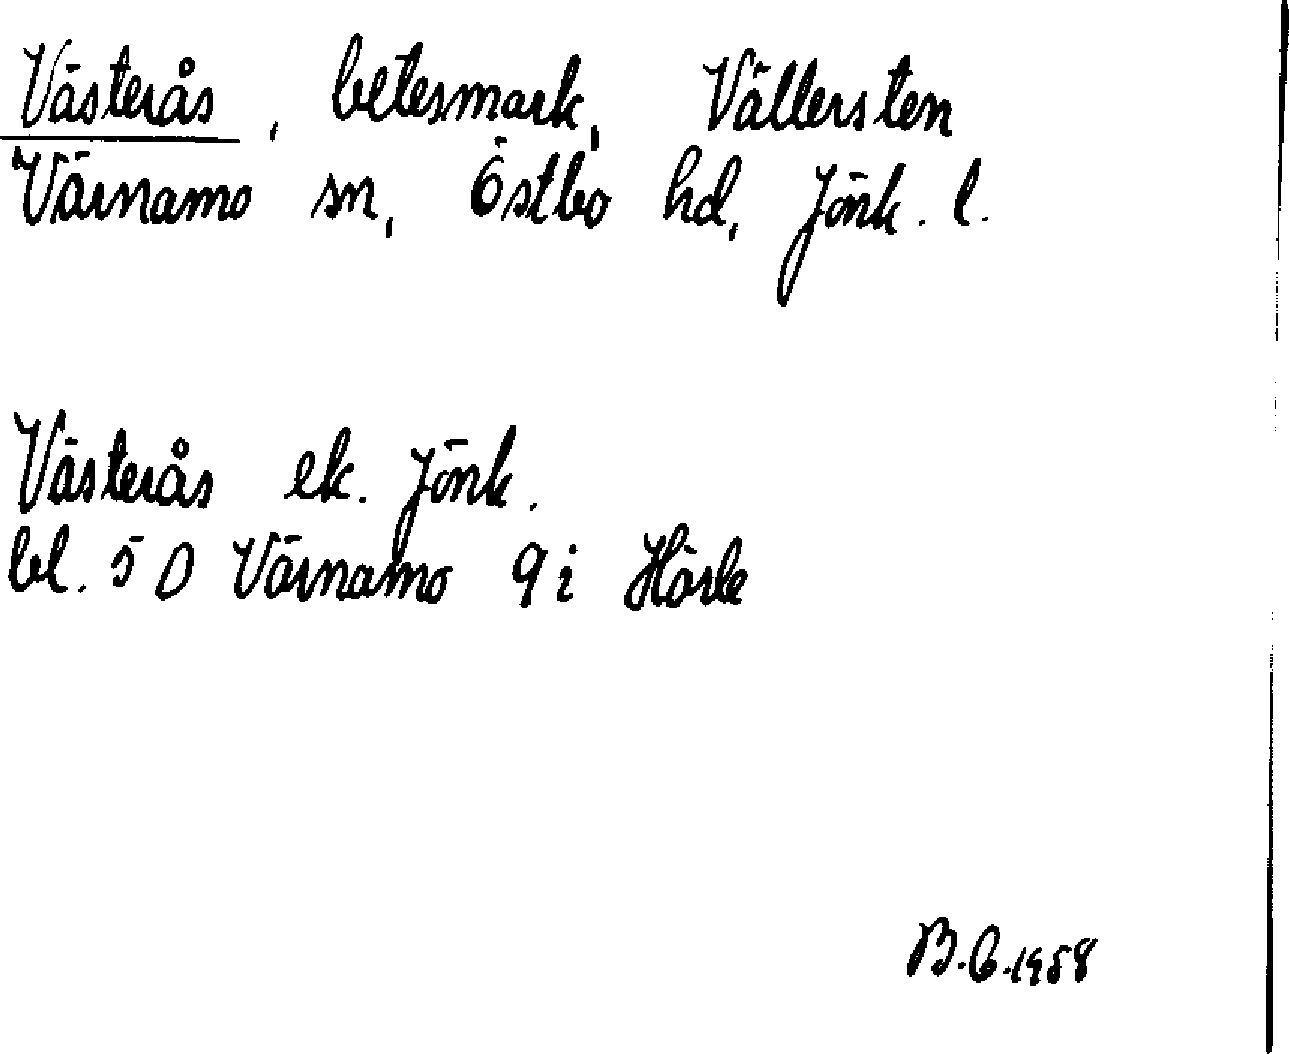 Västerås, betesmark, Vällersten
Värnamo sn, Östbo hd, Jönk. l.
Västerås ek. Jönk.
bl. 5 D Värnamo 9 i Hörle
B.G.1958